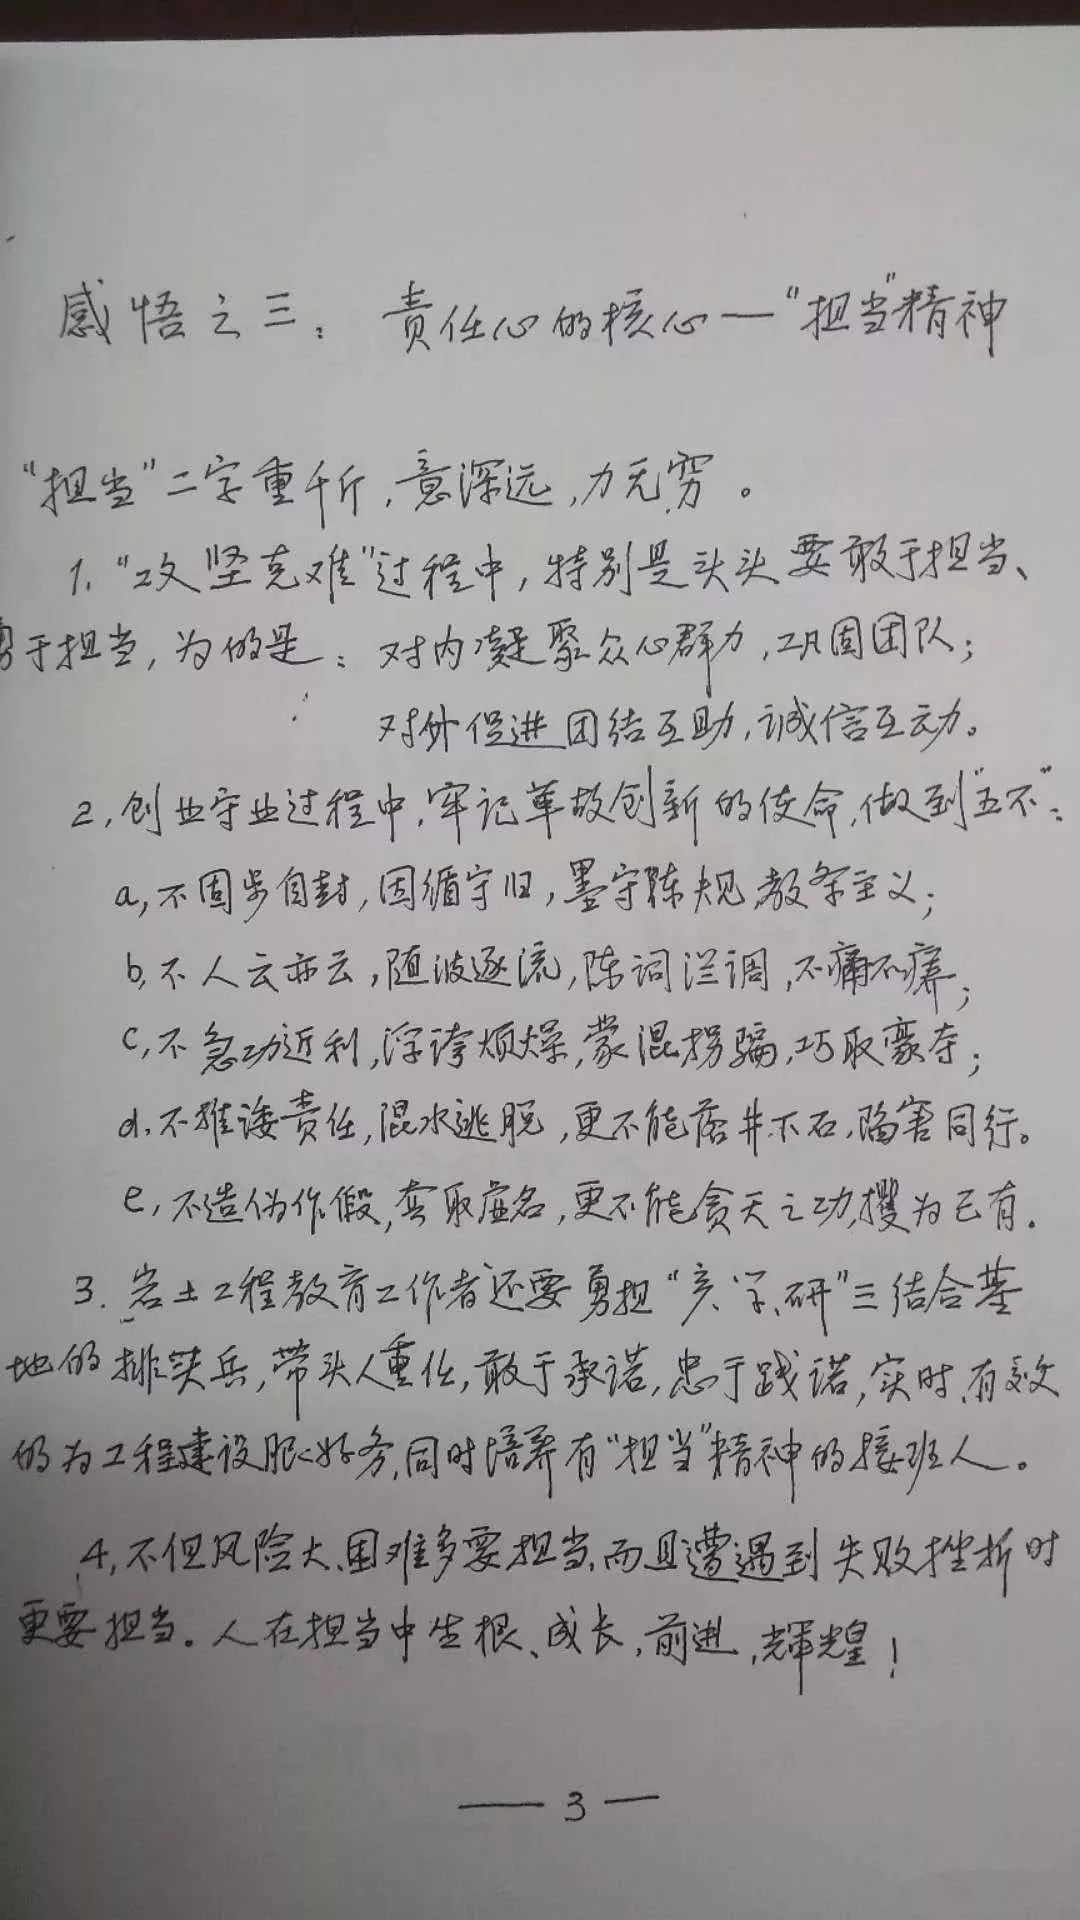 感悟之三：责任心的核心—“担当”精神
“担当”二字重千斤，意深远，力无穷。
1、“攻坚克难”过程中，特别是头头要敢于担当、
勇于担当，为的是：对内凝聚众心群力，巩固团队；
对外促进团结互助，诚信互动。
2，创业守业过程中，牢记革故创新的使命，做到“五不”：
a，不固步自封，因循守旧，墨守陈规，教条主义；
b，不人云亦云，随波逐流，陈词滥调，不痛不痒；
c，不急功近利，浮夸烦燥，蒙混拐骗，巧取豪夺；
d，不推诿责任，混水逃脱，更不能落井下石，陷害同行。
e，不造伪作假，套取虚名，更不能贪天之功，攫为己有.
3. 岩土工程教育工作者还要勇担“产、学、研”三结合基
地的排头兵，带头人重任，敢于承诺，忠于践诺，实时、有效
的为工程建设服好务，同时培养有“担当”精神的接班人。
4，不但风险大、困难多要担当，而且遭遇到失败挫折时
更要担当。人在担当中生根、成长，前进，辉煌！
— 3 —